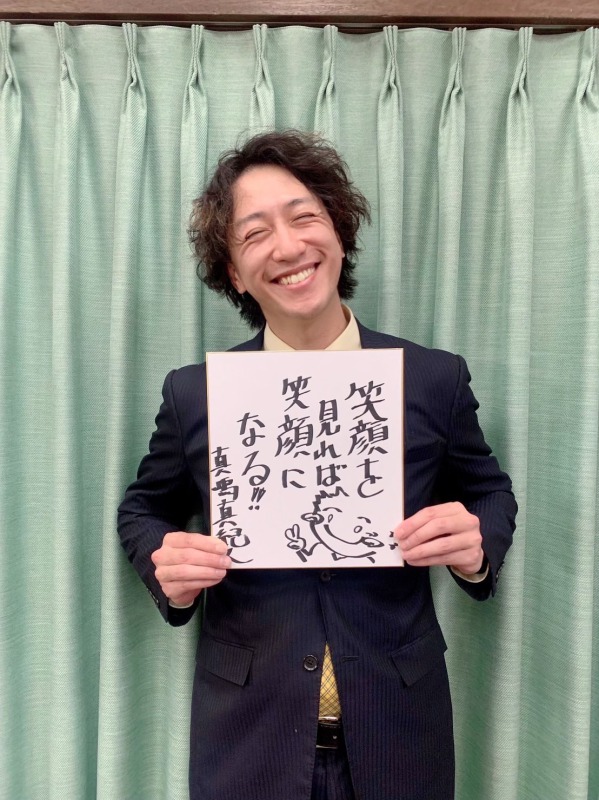 笑顔を
見れば
笑顔に
なる!!!
真嶋真紀人